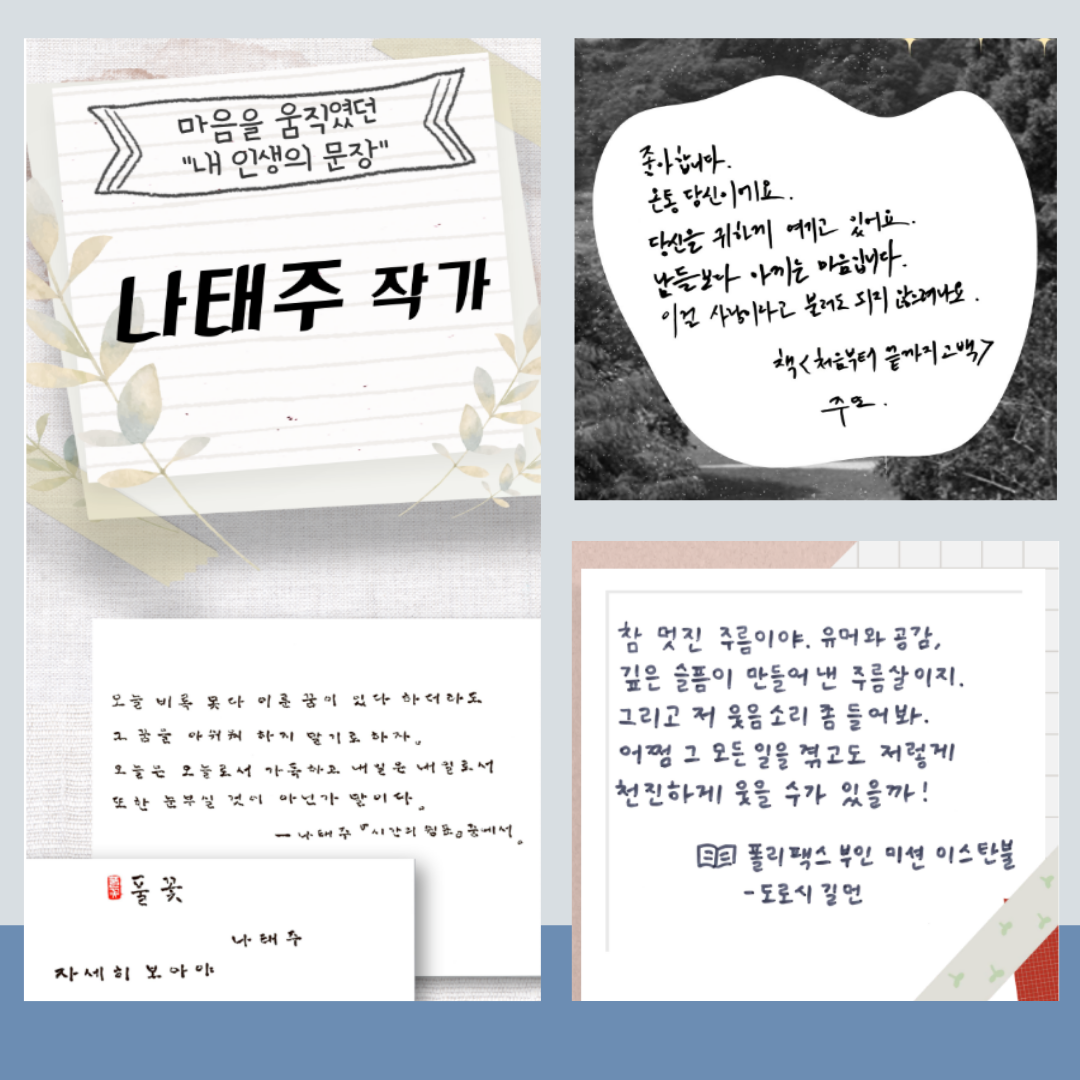 마음을 움직였던
"내 인생의 문장"
나태주 작가
오늘 비록 못다 이룬 꿈이 있다 하더라도
그 꿈을 아쉬워 하지 말기로 하자.
오늘은 오늘로서 가득하고 내일은 내일로서
또한 눈부실 것이 아닌가 말이다.
- 나태주 『시간의 쉼표』중에서.
풀꽃
나태주
자세히 보아야
좋아합니다.
온통 당신이에요.
당신을 귀하게 여기고 있어요.
남들보다 아끼는 마음입니다.
이걸 사랑이라고 불러도 되지 않으려나요.
책<처음부터 끝까지 고백>
주또.
참 멋진 주름이야. 유머와 공감,
깊은 슬픔이 만들어 낸 주름살이지.
그리고 저 웃음소리 좀 들어봐.
어쩜 그 모든 일을 겪고도 저렇게
천진하게 웃을 수가 있을까!
폴리팩스 부인 미션 이스탄불
-도로시 길먼